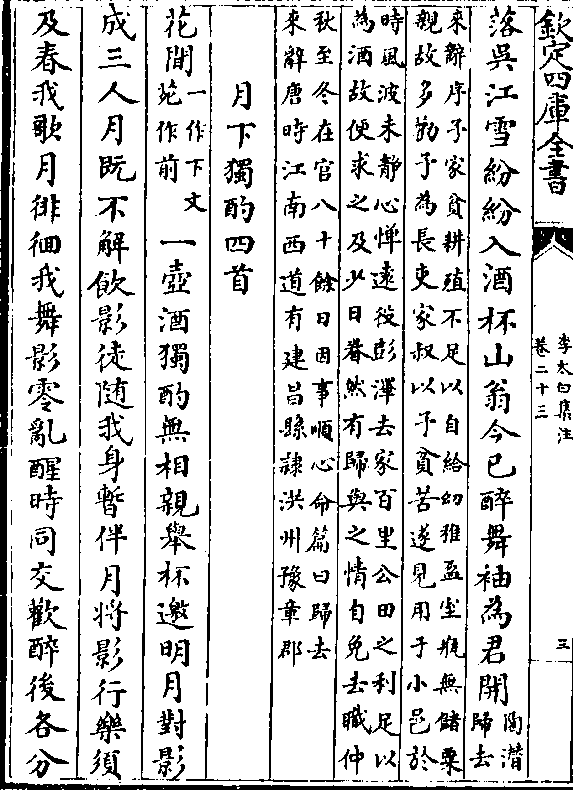 欽定四庫全書
李太白集注
卷二十三
三
落吳江雪紛紛入酒杯山翁今已醉舞袖為君開陶潛歸去
來辭序予家貧耕殖不足以自給幼稚盈室瓶無儲粟
親故多勸予為長吏家叔以予貧苦遂見用于小邑於
時風波未靜心憚遠役彭澤去家百里公田之利足以
為酒故便求之及少日眷然有歸與之情自免去職仲
秋至冬在官八十餘日因事順心命篇曰歸去
來辭唐時江南西道有建昌縣隷洪州豫章郡
月下獨酌四首
花間一作下文苑作前一壺酒獨酌無相親舉杯邀明月對影
成三人月既不解飲影徒隨我身暫伴月將影行樂須
及春我歌月徘徊我舞影零亂醒時同交歡醉後各分